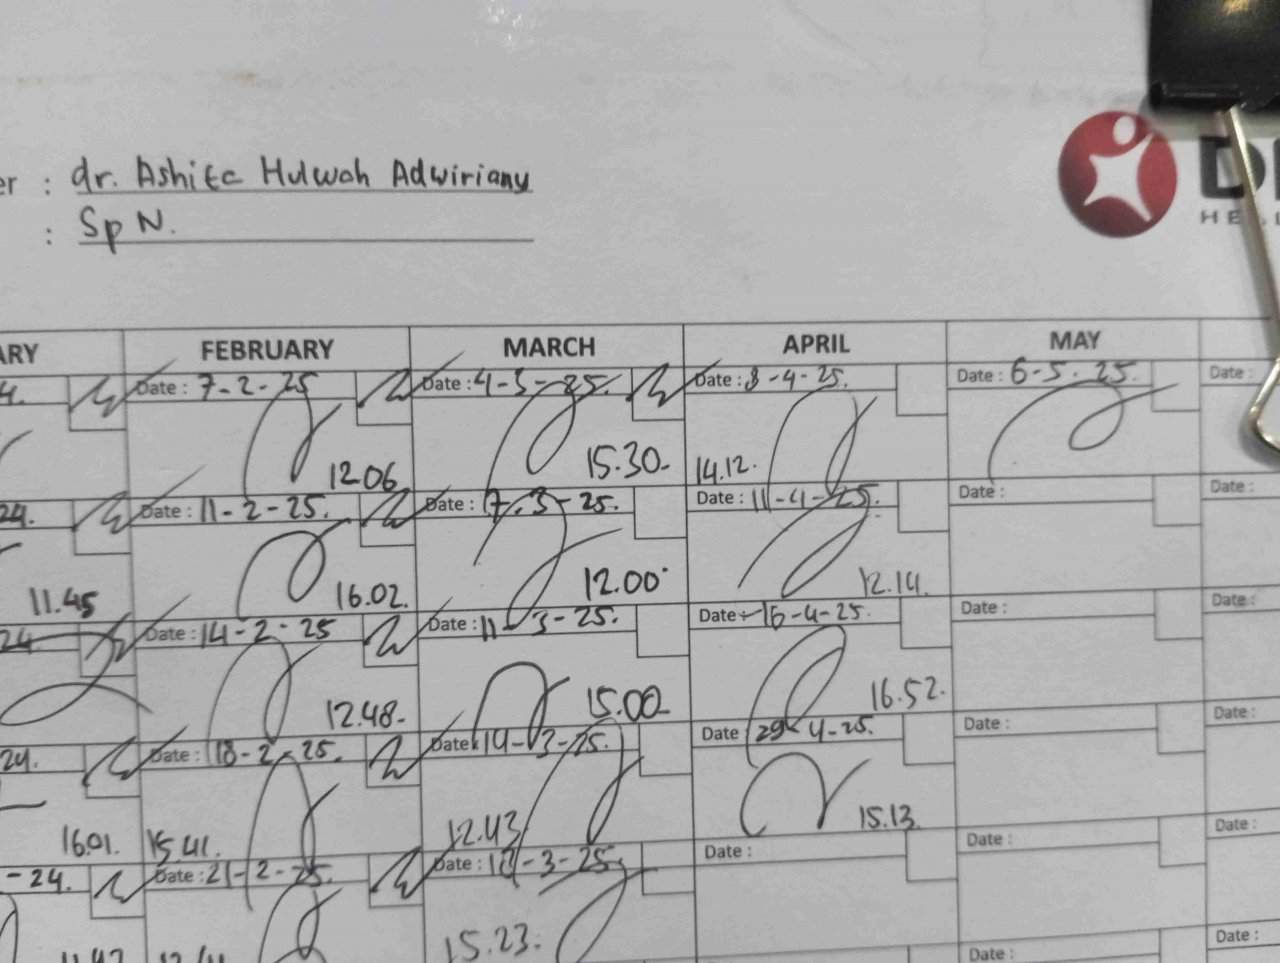 er : dr. Ashita Hulwah Adwiriany
: Sp N.
HE
ARY FEBRUARY MARCH APRIL MAY
4. Date : 7-2-25 Date : 4-3-25. Date : 8-4-25. Date : 6-5-25. Date :
12.06 15.30. 14.12.
24. Date : 11-2-25. Date : 7-3-25. Date : 11-4-25. Date : Date :
11.45 16.02. 12.00 12.14.
24. Date : 14-2-25 Date : 11-3-25. Date : 15-4-25. Date : Date :
12.48. 15.00 16.52.
24. Date : 18-2-25. Date : 14-3-25. Date 29-4-25. Date : Date :
16.01. 15.41. 12.43 15.13.
-24. Date : 21-2-25. Date : 18-3-25. Date : Date : Date :
15.23.
Date : Date :